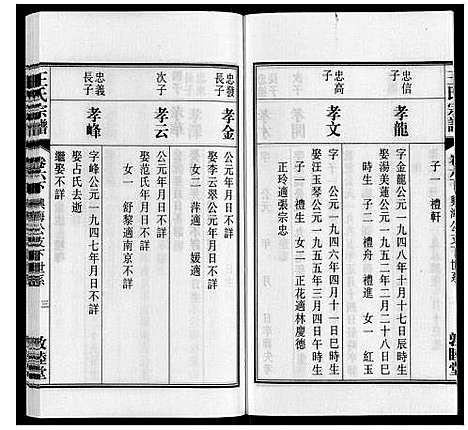 王氏宗譜
敦睦堂
子一 禮軒
忠信
長子
孝龍
字金龍公元一九四八年十月十七日辰時生
娶湯美蓮公元一九五二年二月二十八日巳
時生 子二 禮舟 禮進 女一 紅玉
忠高
子
孝文
字 公元一九四六年四月十一日巳時生
娶汪玉琴公元一九五五年三月四日午時生
子一 禮生 女二 正花適林慶德
正玲適張宗忠
忠發
子
孝金
公元年月日不詳
娶李云翠公元年月日不詳
女二 萍適 媛適
次子
孝云
公元年月日不詳
娶范氏年月日不詳
女一 舒黎適南京不詳
忠義
長子
孝峰
字峰公元一九四七年月日不詳
娶占氏去逝
繼娶不詳
王氏宗譜
卷六下
三
敦睦堂